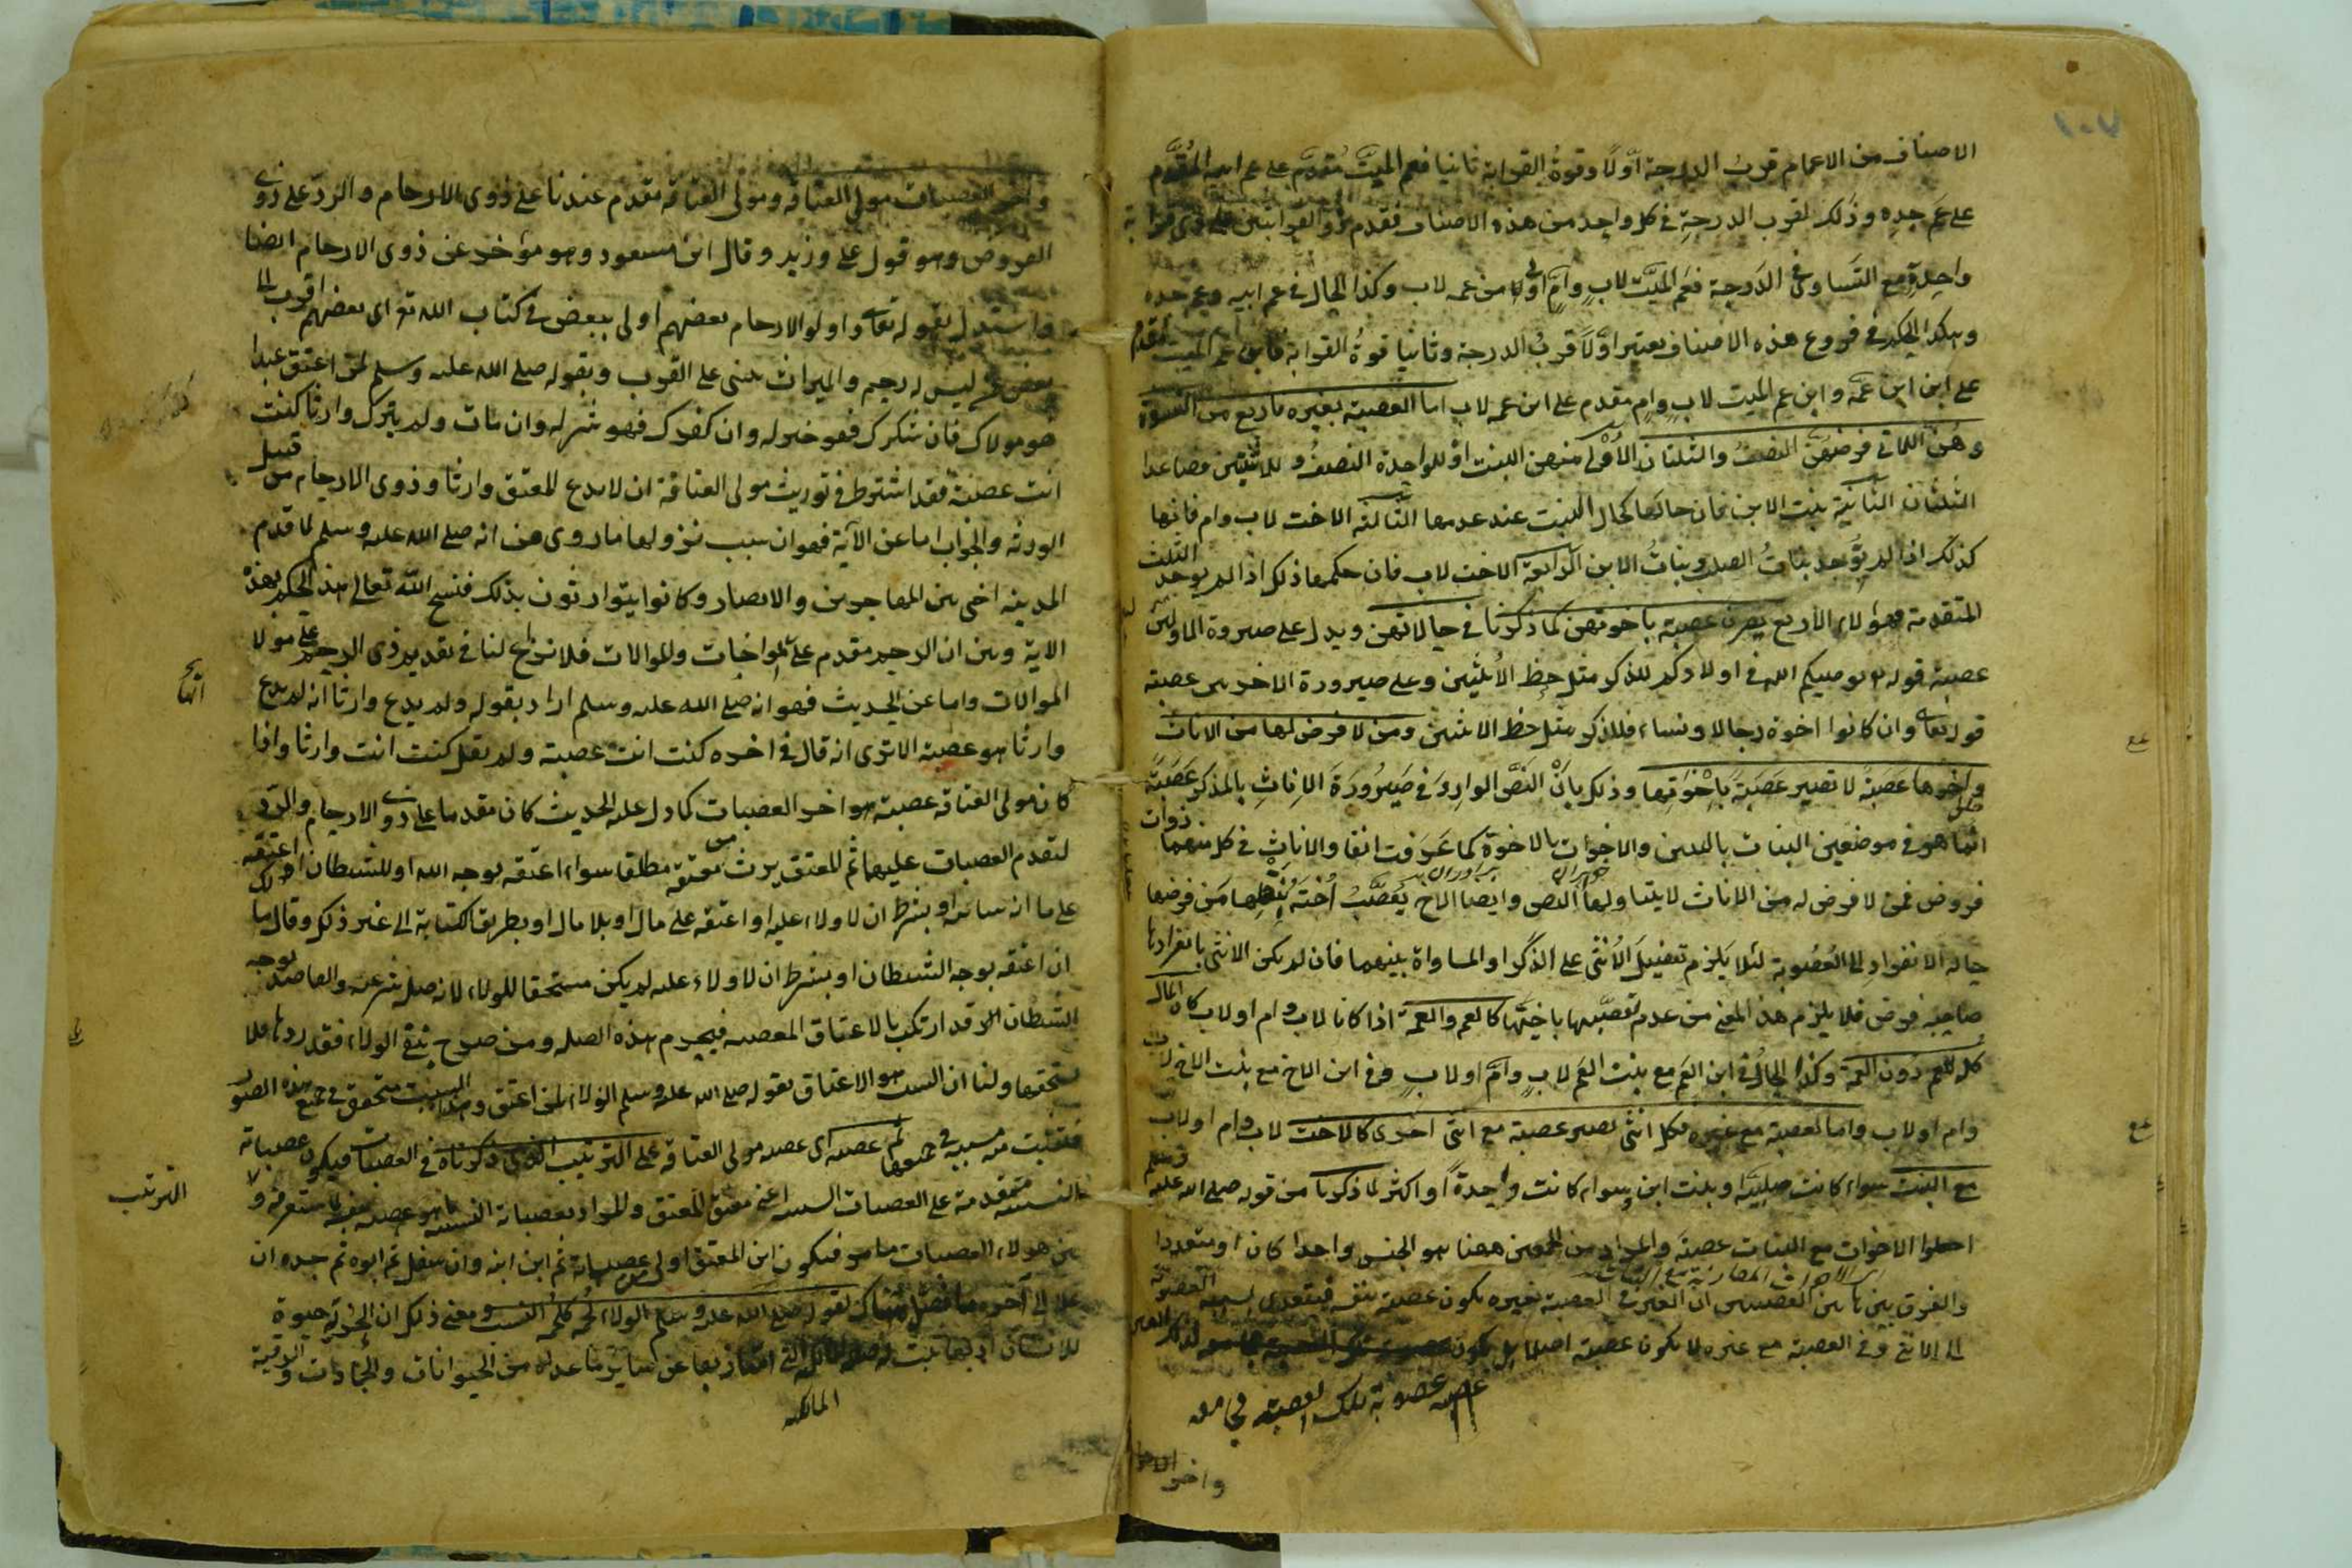 الاصناف من الاعمام قرب الدرجة اوّلًا وقوةُ القرابة ثانيا فعم الميّت مُقدّم على عم ابيه المُقدَّم
على عَم جده وذلك لقرب الدرجةِ في كل واحد من هذه الاصناف فقدم ذو القرابتين على ذي قرابة
واحدةٍ مع التساوى في الدَرجة فعم الميّت لابٍ وامٍ اولى من عمه لاب وكذا الحال في عم ابيه وعم جده
وهكذا الحكم في فروع هذه الاصناف يعتبر اوَّلًا قربُ الدرجة وثانيا قوةُ القرابة فابن عم الميت مقدم
على ابن ابن عمه وابن عم الميت لابٍ وامٍ مقدم على ابن عمه لاب اما العصبة بغيره فاربع من النسوة
وهُنّ اللاتي فرضهُنّ النصفُ والثلثان الاُوْلى منهن البنت اذ للواحدة النصفُ وللاثنتين فصاعدا
الثلثان الثّانية بنت الابن فان حالها كحال البنت عند عدمها الثّالثة الاخت لاب وام فانها
كذلك اذا لم توجد بناتُ الصلب وبناتُ الابن الرّابعة الاخت لاب فان حكمها ذلك اذا لم يوجد الثلث
المتقدمة فهؤلاء الاربع يصرن عصبة باخوتهن كما ذكرنا في حالاتهن ويدل على صيرورة الاوليين
عصبة قوله تع يوصيكم الله في اولادكم للذكر مثل حظ الاُنثيين وعلى صيرورة الاخريين عصبة
قوله تعا وان كانوا اخوة رجالا ونساء فللذكر مثل حظ الانثيين ومن لا فرض لها من الاناث
واخوها عَصَبةٌ لا تصير عَصَبَة بَاِخْوَتها وذلك بانّ النَصَّ الوارِدَ في صَيرُورَة الاِناثِ بالمذكر عَصَبَةً
انّما هو في موضعين البنات بالبنين والاخوات بالاخوة كما عَرَفت انفا والاناثِ في كل منهما ذوات
فروض فمن لا فرض له من الاناث لا يتناولها النص وايضا الاخ يُعصّبُ اُخته بنقلها من فرضها
حاله الانفراد الى العُصُوبة لئلا يَلزم تفضيلُ الاُنثى على الذكر او المساواة بينهما فان لم يكن الانثى بانفرادها
صاحبة فرض فلا يلزم هذا المعنى من عدم تعصّبها باخيها كالعم والعمة اذا كانا لاب وام او لاب كان المال
كله للعم دُون العمة وكذا الحال في ابن العَم مع بنت العَم لابٍ وامّ او لابٍ وفي ابن الاخ مع بنت الاخ لاب
وام او لاب واما العصبة مع غيره فكل انثى تصير عصبة مع انثى اخرى كالاخت لاب وام او لاب
مع البنت سواء كانت صلبيّة او بنت ابن وسواء كانت واحدةً او اكثر لما ذكرنا من قوله صلى الله عليه وسلم
اجعلوا الاخوات مع البنات عصبة والمراد من الجمعين ههنا هو الجنس واحدا كان او متعددا
والفرق بين هاتين العصبتين ان الغير في العصبة بغيره يكون عصبة بنفسه فيتعدى بسببه العصوبة
الى الانثى وفي العصبة مع غيره لا يكون عصبة اصلا بل يكون
عصبه عصوبة تلك العصبة مجامعة
واخر العصبات
واخر العصبات مولى العتاقة ومولى العتاقة مقدم عندنا على ذوى الارحام والردّ على ذوى
الفروض وهو قول على وزيد وقال ابن مسعود وهو مؤخر عن ذوى الارحام ايضا
واستدل بقوله تعا واولوا الارحام بعضهم اولى ببعض في كتاب الله تع اى بعضهم اقرب الى
بعض ليس له رحم والميراث يبنى على القرب وبقوله صلى الله عليه وسلم لمن اعتق عبدا
هو مولاك فان شكرك فهو خير له وان كفرك فهو شر له وان مات ولم يترك وارثا كنت
انت عصبته فقد اشترط في توريث مولى العتاقة ان لا يدع المعتق وارثا وذوى الارحام من قبيل
الورثه والجواب اما عن الآية فهو ان سبب نزولها ما روى من انه صلى الله عليه وسلم لما قدم
المدينة اخى بين المهاجرين والانصار وكانوا يتوارثون بذلك فنسخ الله تعالى هذا الحكم بهذه
الاية وبين ان الرحم مقدم على المواخات والموالات فلا نزاع لنا في تقديم ذى الرحم على مولا
الموالات واما عن الحديث فهو انه صلى الله عليه وسلم اراد بقوله ولم يدع وارثا انه لم يدع
وارثا هو عصبة الا ترى انه قال في اخره كنت انت عصبته ولم يقل كنت انت وارثا واذا
كان مولى العتاقة عصبة هو اخر العصبات كما دل عليه الحديث كان مقدما على ذوى الارحام والرّد
لتقدم العصبات عليهما ثم المعتق يرث من معتقه مطلقا سواء اعتقه لوجه الله او للشيطان او اعتقه
على انه سائبة او بشرط ان لا ولاء عليه او اعتقه على مال او بلا مال او بطريق الكتابة الى غير ذلك وقال مالك
ان اعتقه لوجه الشيطان او بشرط ان لا ولاء عليه لم يكن مستحقا للولاء لانه صلة شرعية والعاصى لوجه
الشيطان قد ارتكب بالاعتاق المعصية فيحرم هذه الصلة ومن صرح بنفى الولاء فقد ردها فلا
يستحقها ولنا ان السبب هو الاعتاق لقوله صلى الله عليه وسلم الولاء لمن اعتق وهذا السبب متحقق في جميع هذه الصور
ثم عصبته اى عصبة مولى العتاقة على الترتيب الذى ذكرناه في العصبات فيكون عصباته
النسبية متقدمة على العصبات السببية اعنى معتق المعتق والمراد بعصباته النسبية ما هو عصبة بنفسه
من هؤلاء العصبات فيكون ابن المعتق اولى عصباته ثم ابن ابنه وان سفل ثم ابوه ثم جده وان
علا الى آخره لقوله صلى الله عليه وسلم الولاء لحمة كلحمة النسب ومعنى ذلك ان الحرية حيوة
للانسان اذ بها امتاز بها عن سائر ما عداه من الحيوانات والجمادات والرقية
المالكيه
الترتيب